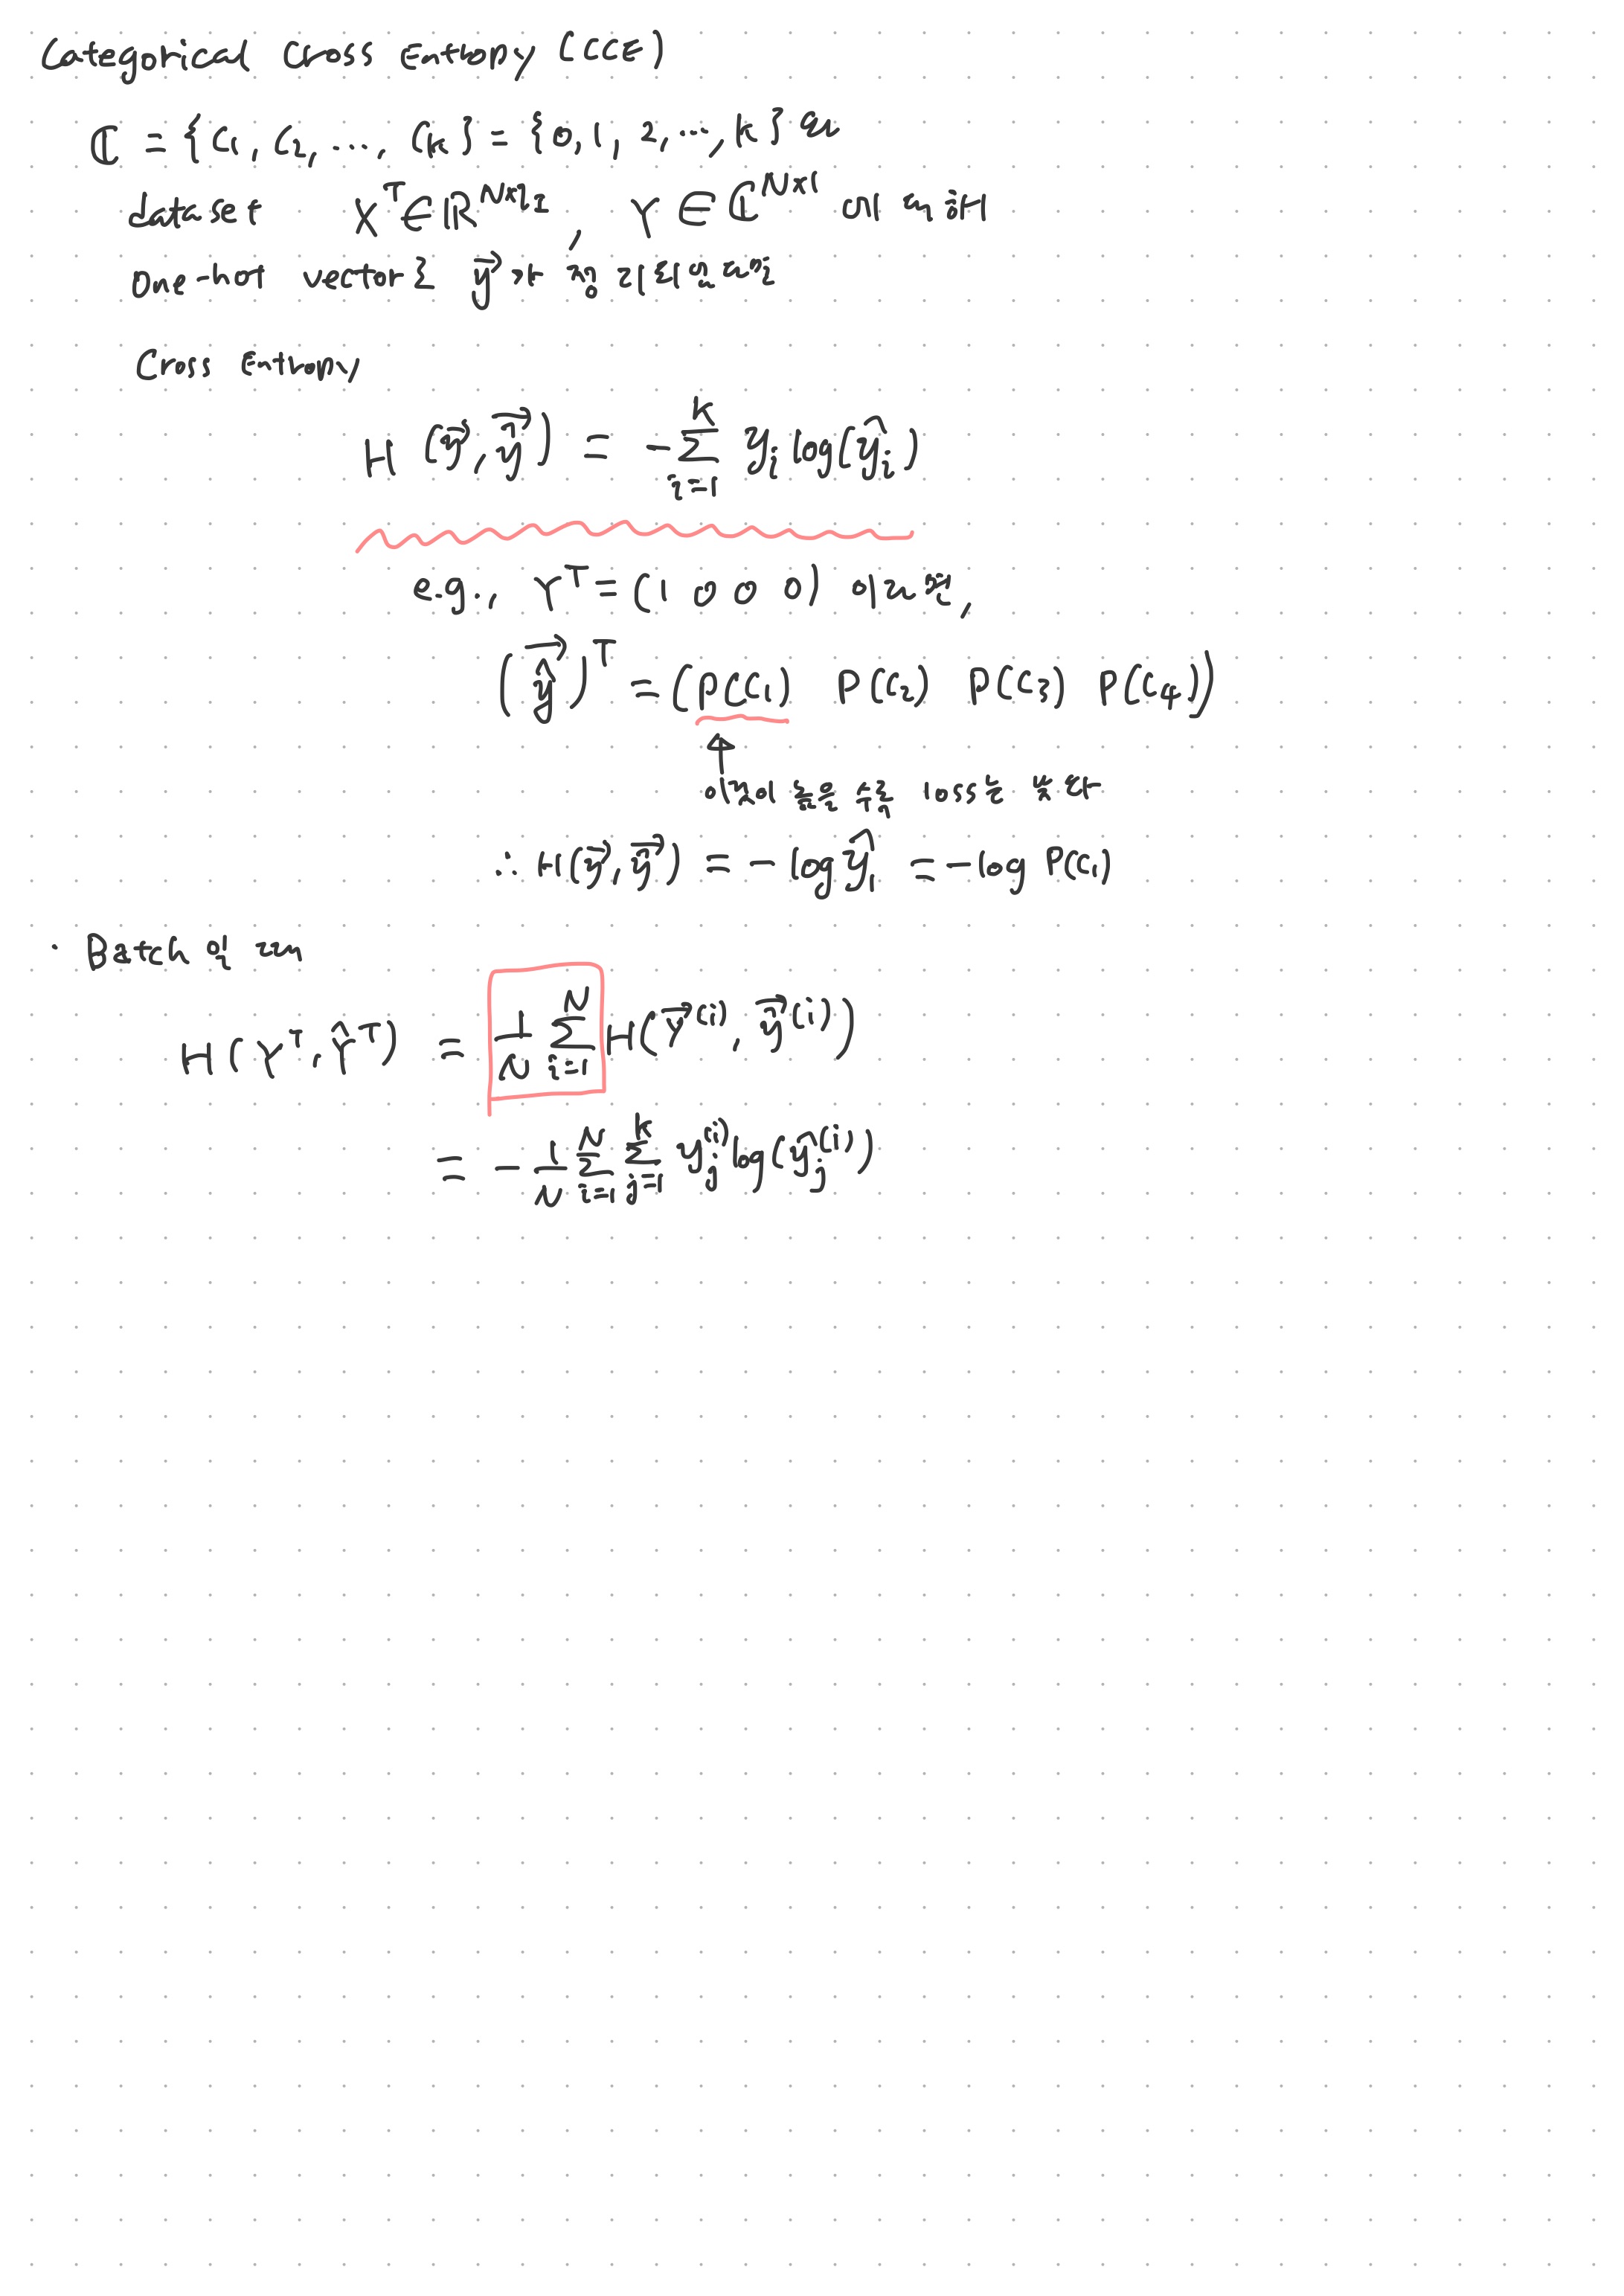 Categorical Cross Entropy (CCE)
ℂ = {C₁, C₂, ..., Cₖ} = {0, 1, 2, ..., k} 일때
data set Xᵀ ∈ ℝ^(N×l_I), Y ∈ ℂ^(N×1) 에 대해
one-hot vector를 y⃗라 정의하면
Cross Entropy
H (y⃗, ŷ⃗) = -∑_{i=1}^{K} yᵢ log(ŷᵢ)
e.g., Yᵀ = (1 0 0 0) 이라면,
(ŷ⃗)ᵀ = (P(C₁) P(C₂) P(C₃) P(C₄))
이것이 높을수록 loss는 낮다
∴ H(y⃗, ŷ⃗) = -log ŷ₁ = -log P(C₁)
· Batch 에 대해
H(Yᵀ, Ŷᵀ) = 1/N ∑_{i=1}^{N} H(y⃗⁽ⁱ⁾, ŷ⃗⁽ⁱ⁾)
= -1/N ∑_{i=1}^{N} ∑_{j=1}^{k} yⱼ⁽ⁱ⁾ log(ŷⱼ⁽ⁱ⁾)